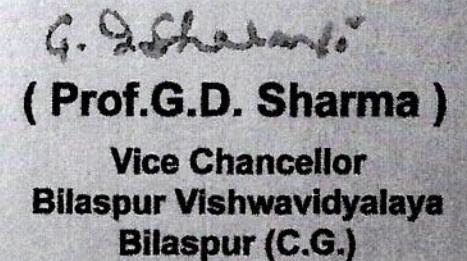 G. D. Sharma
( Prof.G.D. Sharma )
Vice Chancellor
Bilaspur Vishwavidyalaya
Bilaspur (C.G.)